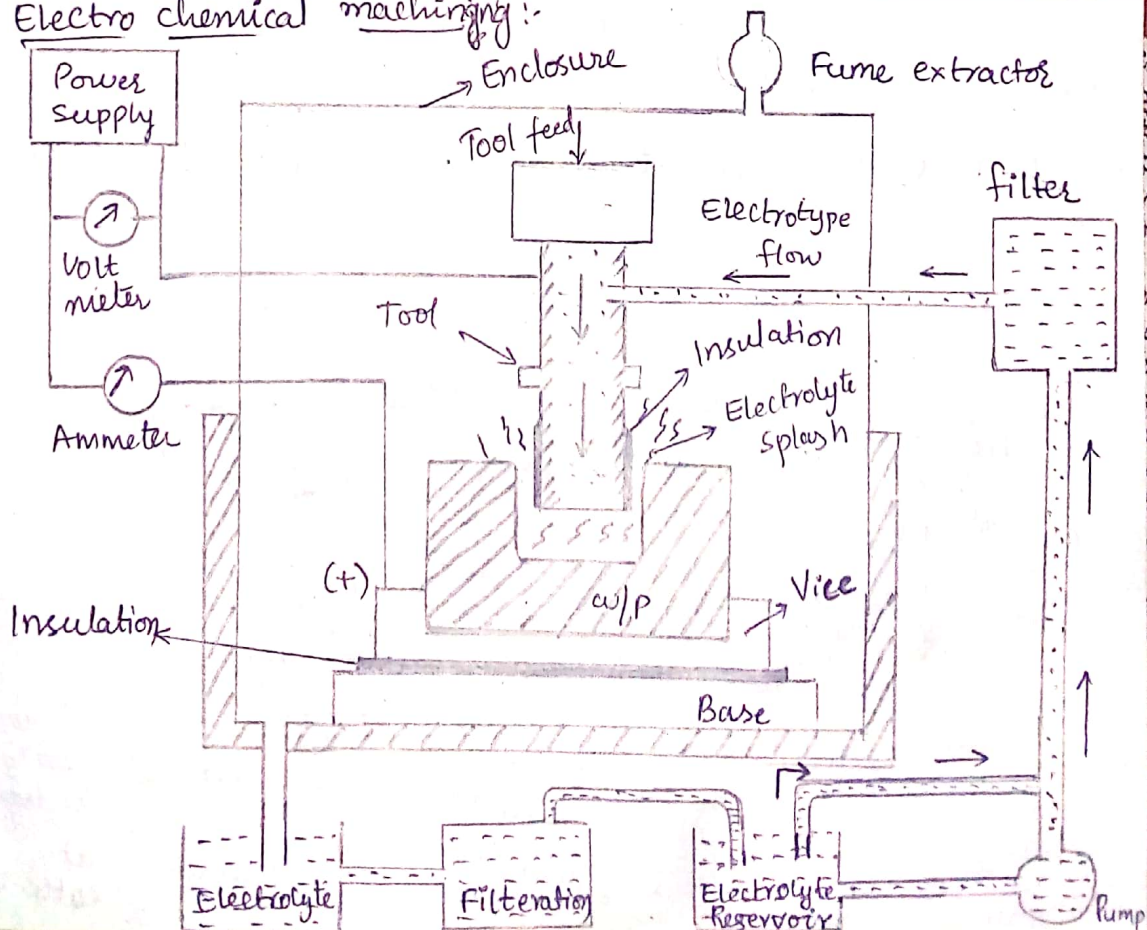 Electro chemical machining:-
Power
Supply
Enclosure
Fume extractor
Tool feed
filter
Electrotype
flow
Volt
meter
Tool
Insulation
Electrolyte
splash
Ammeter
(+)
Vice
w/p
Insulation
Base
Electrolyte
Filteration
Electrolyte
Reservoir
Pump